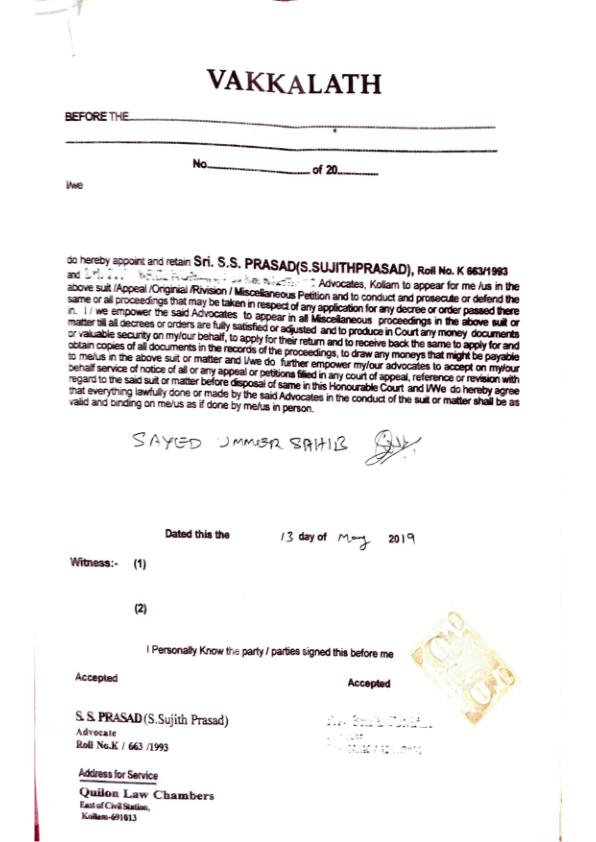 VAKKALATH
BEFORE THE
No. of 20
I/we
do hereby appoint and retain Sri. S.S. PRASAD(S.SUJITHPRASAD), Roll No. K 663/1993
and Advocates, Kollam to appear for me /us in the
above suit /Appeal /Originial /Rivision / Miscellaneous Petition and to conduct and prosecute or defend the
same or all proceedings that may be taken in respect of any application for any decree or order passed there
in. I / we empower the said Advocates to appear in all Miscellaneous proceedings in the above suit or
matter till all decrees or orders are fully satisfied or adjusted and to produce in Court any money documents
or valuable security on my/our behalf, to apply for their return and to receive back the same to apply for and
obtain copies of all documents in the records of the proceedings, to draw any moneys that might be payable
to me/us in the above suit or matter and I/we do further empower my/our advocates to accept on my/our
behalf service of notice of all or any appeal or petitions filled in any court of appeal, reference or revision with
regard to the said suit or matter before disposal of same in this Honourable Court and I/We do hereby agree
that everything lawfully done or made by the said Advocates in the conduct of the suit or matter shall be as
valid and binding on me/us as if done by me/us in person.
SAYED UMMER SAHIB
Dated this the 13 day of May 2019
Witness:- (1)
(2)
I Personally Know the party / parties signed this before me
Accepted Accepted
S. S. PRASAD (S.Sujith Prasad)
Advocate
Roll No.K / 663 /1993
Address for Service
Quilon Law Chambers
East of Civil Station,
Kollam-691013